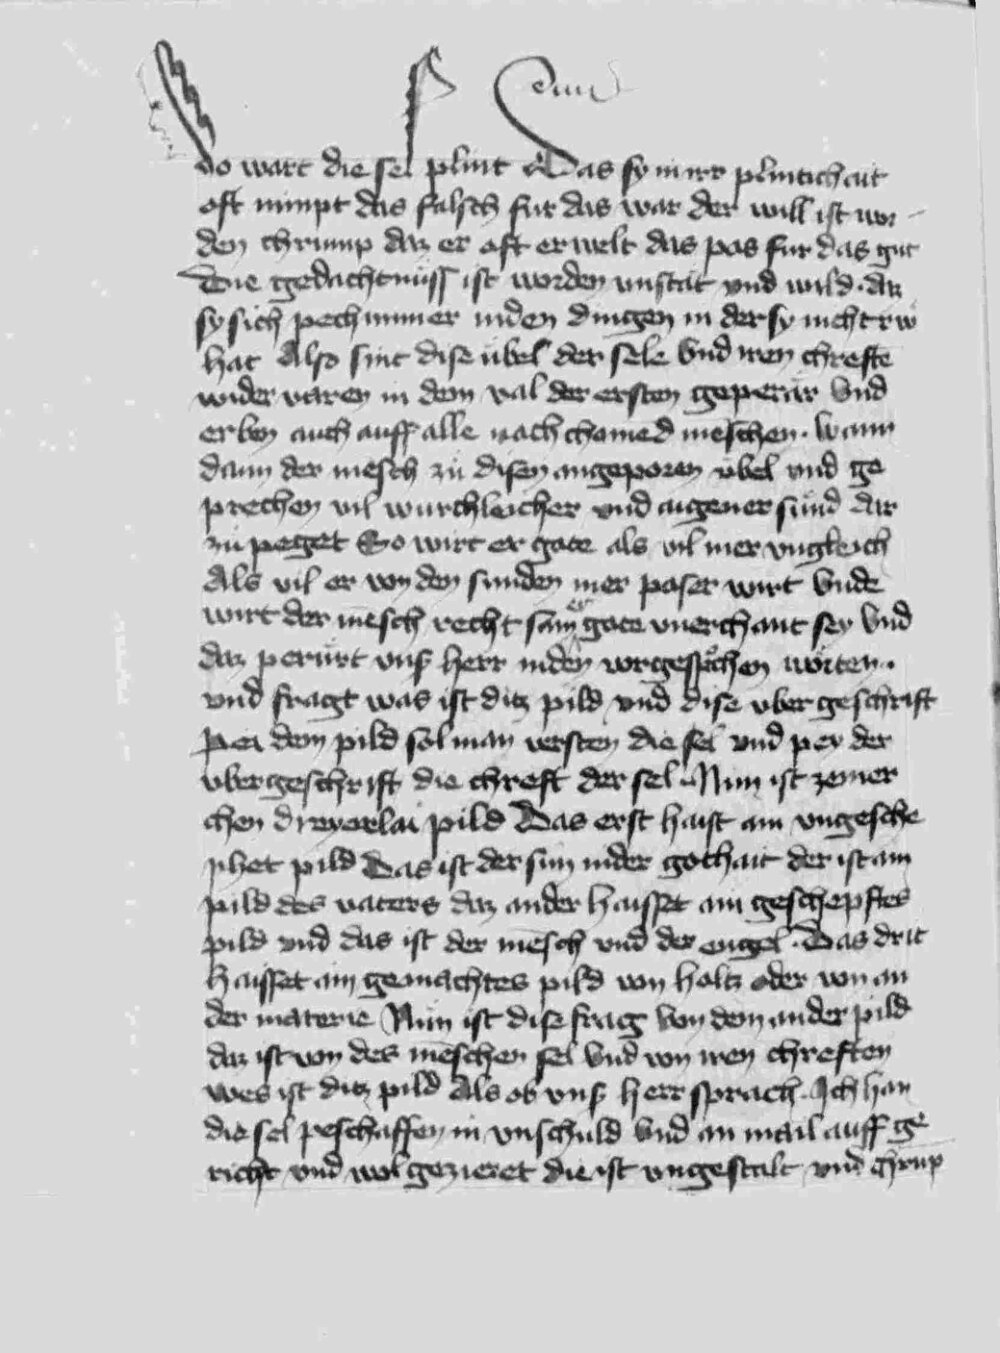 do wart die sel plint Das sy in irr plintichait
oft nimpt das falsch fur das war der will ist wor
den chrump daz er oft erwelt das pos fur das gut
Die gedachtnuss ist worden unstat und wild. daz
sy sich pechummer in den dingen in der sy nicht rw
hat Also sint dise ubel der sele Und iren chrefte
wider varen in dem val der ersten geperär Und
erben auch auff alle nach chomed mēschen. Wann
dann der mēsch zu disen angeporen ubel und ge
prechen vil wurchleicher und aigener sünd dar
zu peget So wirt er gote als vil mer ungleich
Als vil er von den sunden mer poser wirt Unde
wirt der mēsch recht sam er gote unerchant sey Und
daz perürt unß herr in den vorgesprochen worten.
und fragt was ist ditz pild und dise ubergeschrift
Pei dem pild sol man versten die sel und pey der
ubergeschrift die chreft der sel. Nun ist zemer
chen dreyerlai pild Das erst haist ain ungesche
phet pild Das ist der sun in der gothait der ist ain
pild des vaters daz ander haisset ain geschepftes
pild und das ist der mēsch und der engel. Das drit
haisset ain gemachtes pild von holtz oder von an
der materie Nun ist dise frag Von dem ander pild
daz ist von des mēschen sel Und von iren chreften
wes ist ditz pild Als ob unß herr sprach. Ich han
die sel peschaffen in unschuld Und an mail auff ge
richt und wol gezieret die ist ungestalt und chrūp